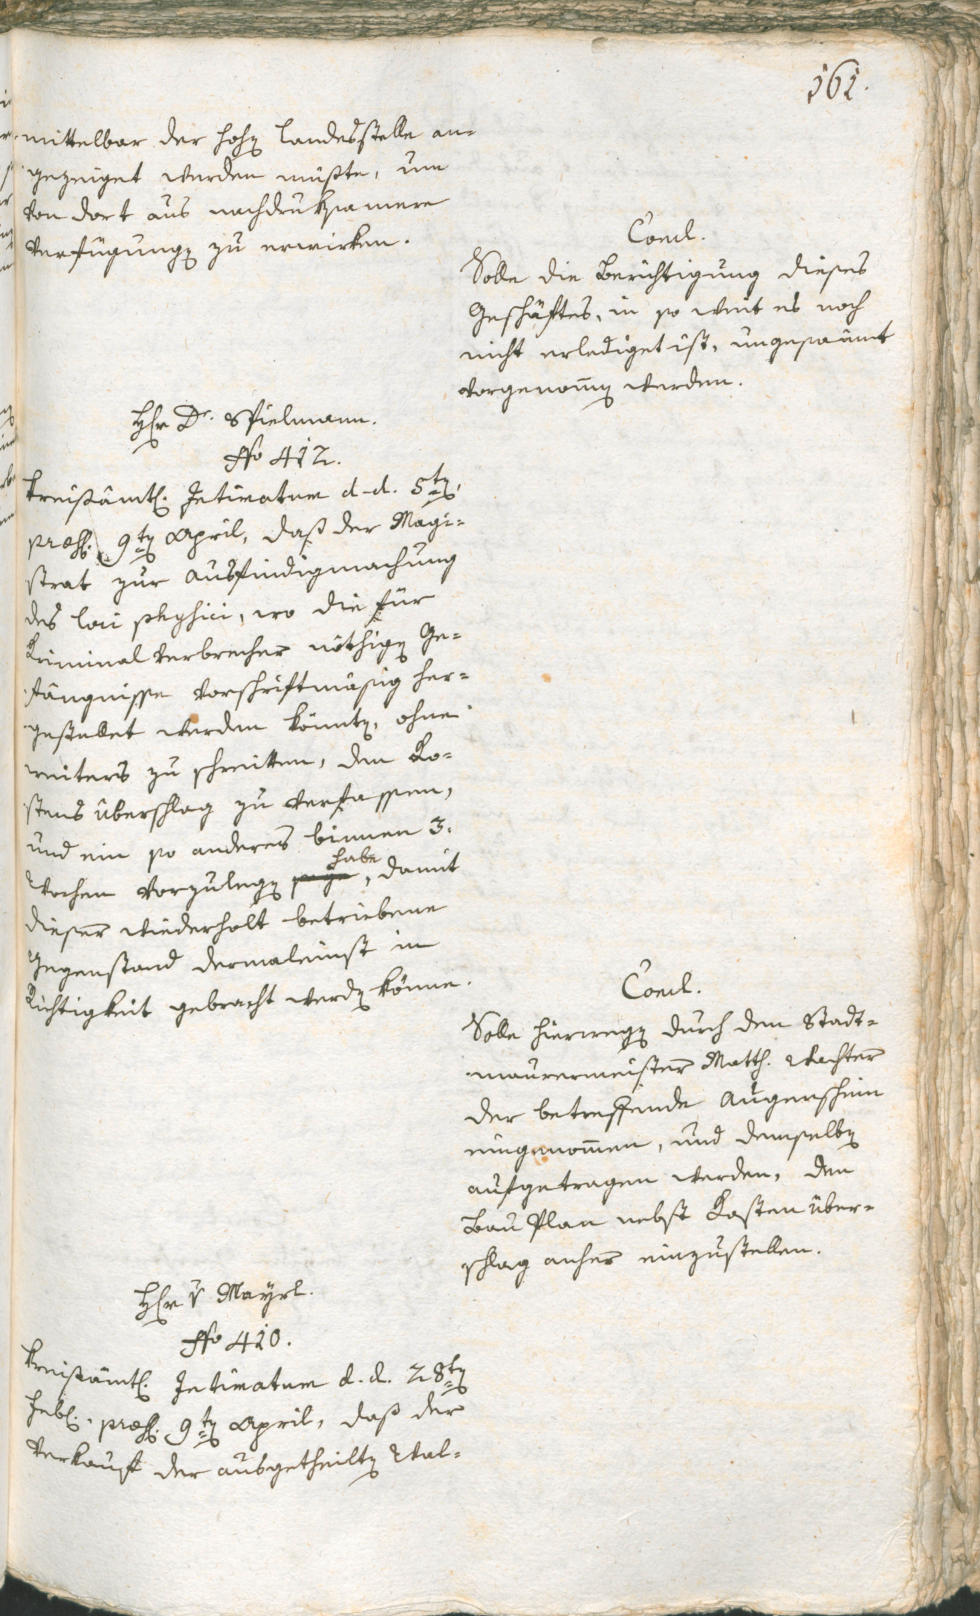 161.
mittelbar der hohen Landesstelle an-
gezeiget werden müßte, um
von dort aus nachdruksamere
Verfügungen zu erwirken.
Concl.
Solle die Berichtigung dieses
Geschäftes, in so weit es noch
nicht erlediget ist, ungesaumt
vorgenommen werden.
Herr Dr. Spielmann.
No 412.
Kreisämtl. Intimatum d. d. 5ten
praes. 9ten April, daß der Magi-
strat zur Ausfindigmachung
des loci physici, wo die für
Kriminal Verbrecher nöthigen Ge-
fängnisse vorschriftmäsig her-
gestellet werden könnten, ohne
weiters zu schreitten, den Ko-
stens überschlag zu verfassen,
und ein so anderes binnen 3.
Wochen vorzulegen habe, damit
dieser wiederholt betriebene
Gegenstand dermaleinst in
Richtigkeit gebracht werden könne.
Concl.
Solle hierwegen durch den Stadt-
maurermeister Matth. Wachter
der betreffende Augenschein
eingenommen, und demselben
aufgetragen werden, den
Bau Plan nebst Kosten über-
schlag anher einzustellen.
Herr v Mayrl.
No 410.
Kreisämtl. Intimatum d. d. 28ten
Febr. praes. 9ten April, daß der
Verkauf der ausgetheilten Wal-